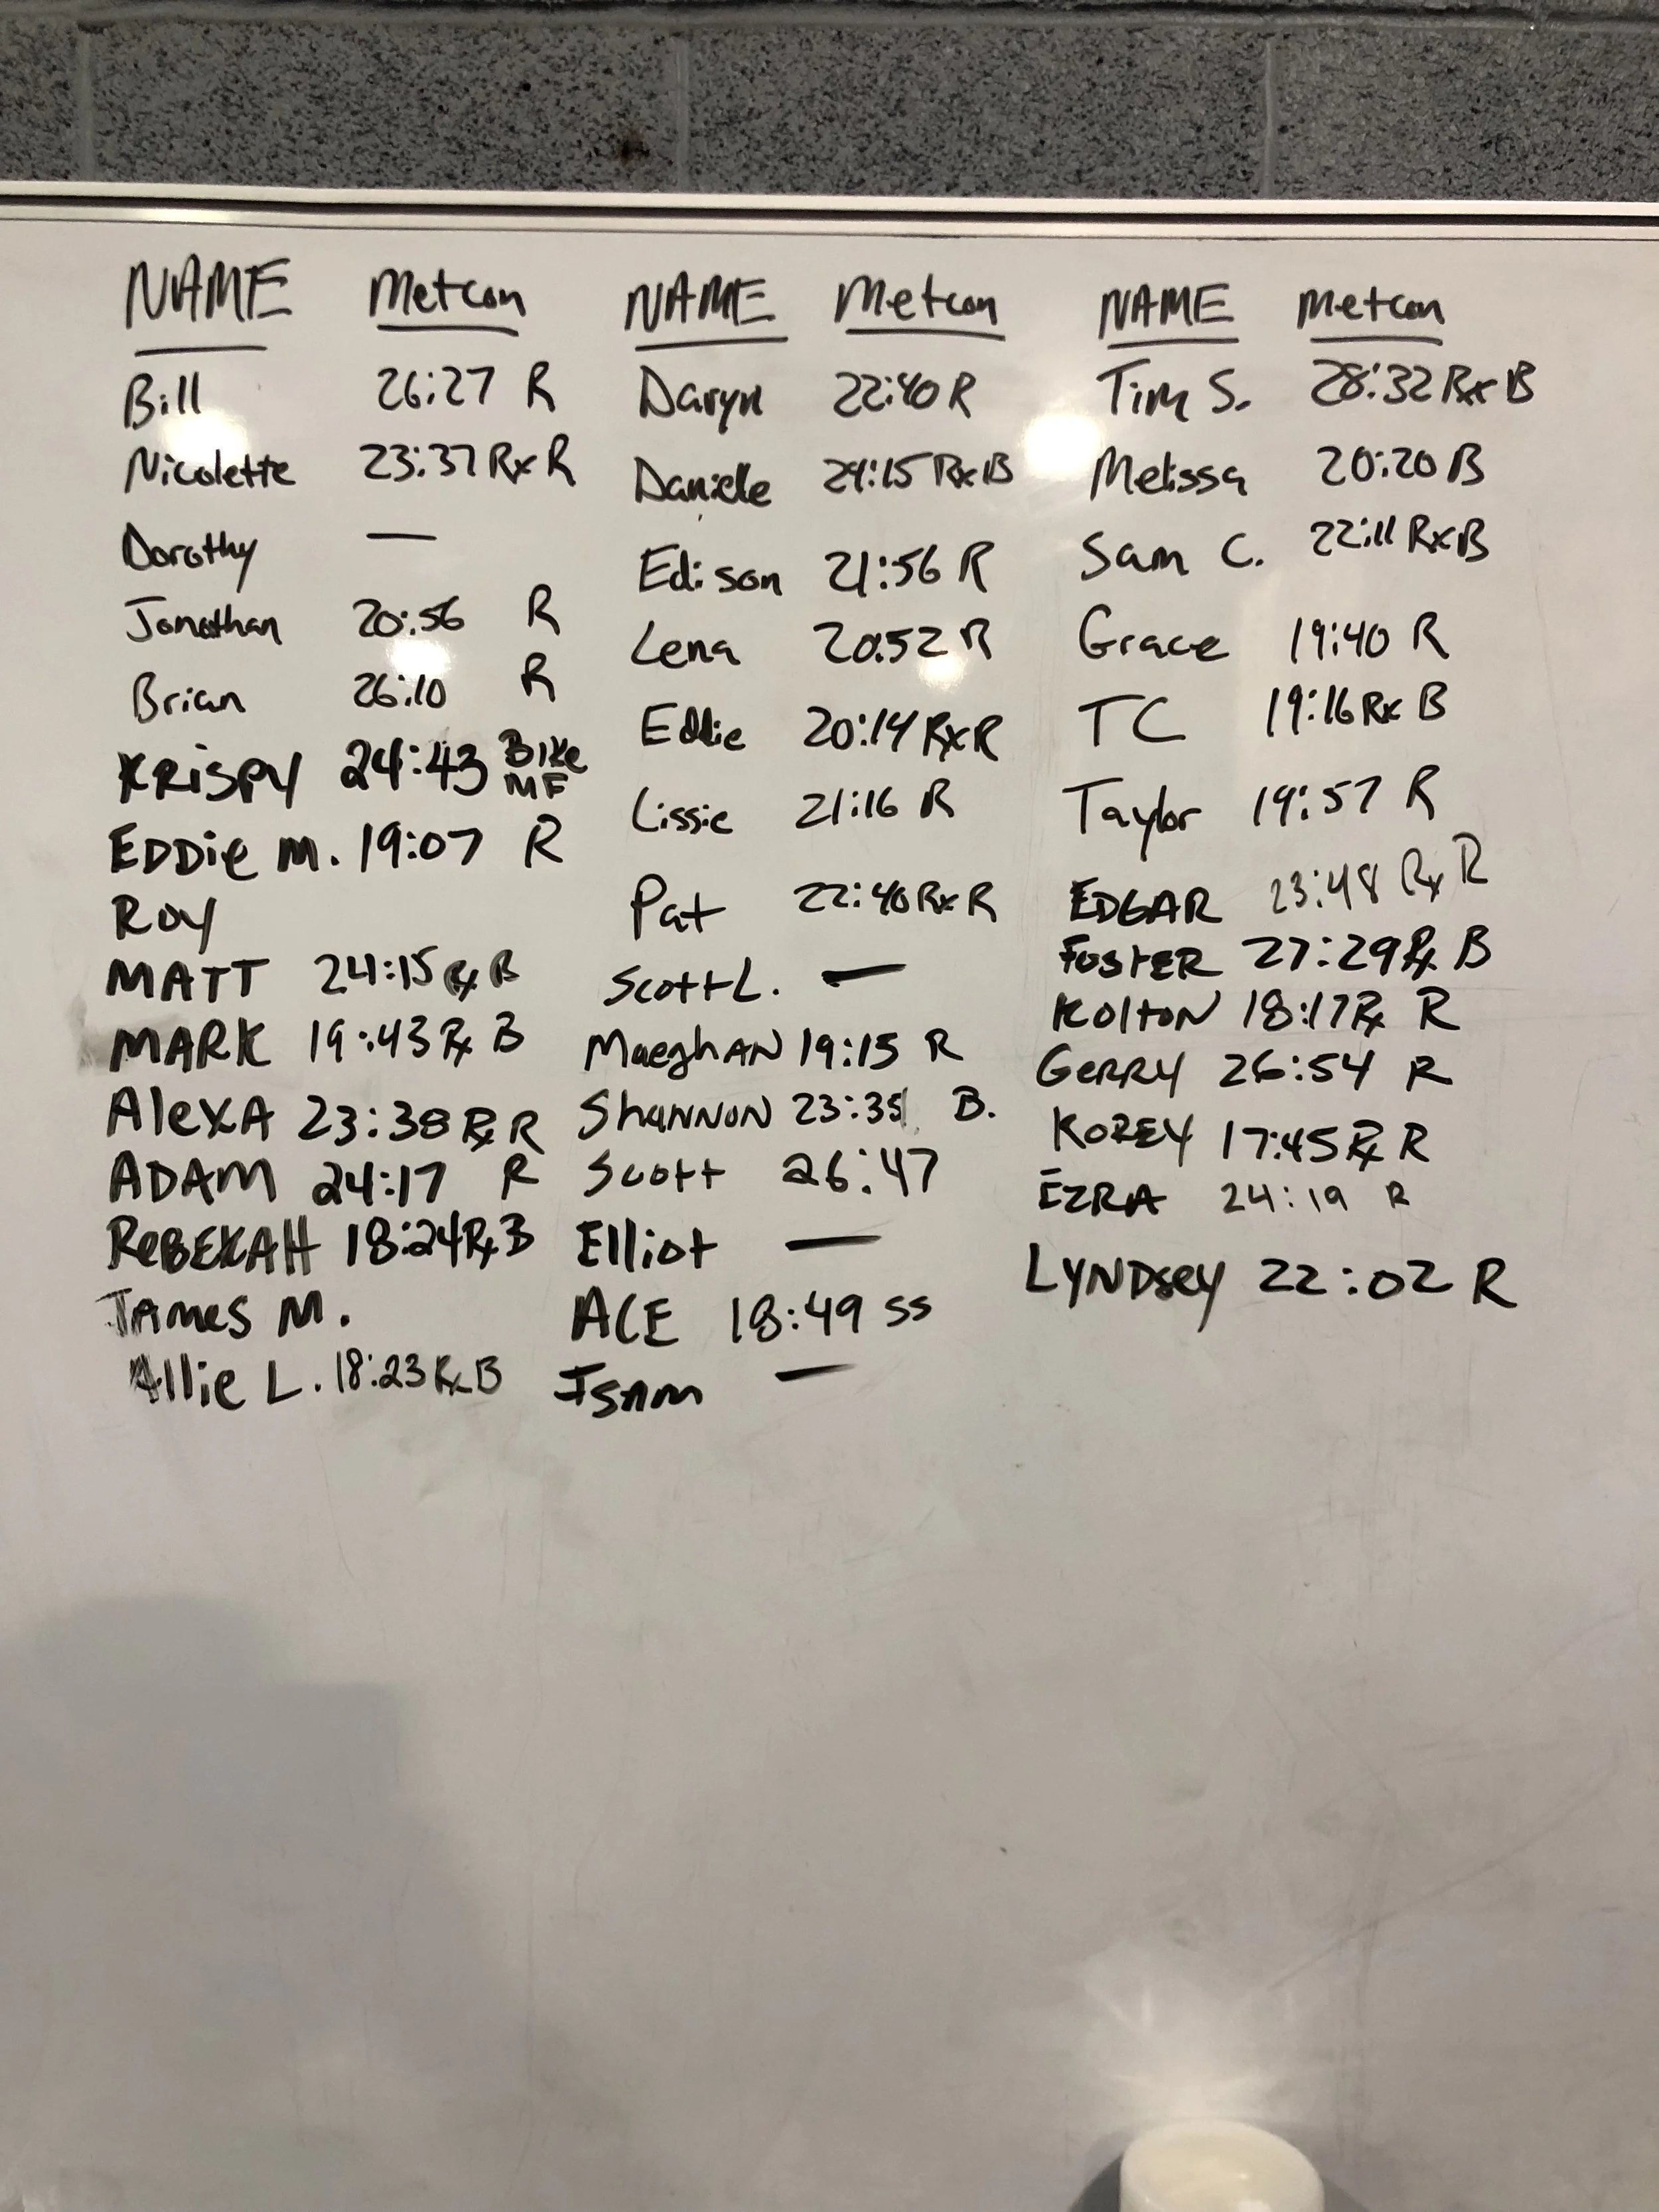 NAME Metcon
Bill 26:27 R
Nicolette 23:37 Rx R
Dorothy —
Jonathan 20:56 R
Brian 26:10 R
KRISPY 24:43 BIKE MF
EDDie M. 19:07 R
ROY
MATT 24:15 Rx B
MARK 19:43 Rx B
AleXA 23:38 Rx R
ADAM 24:17 R
ReBEKAH 18:24 Rx B
JAMES M.
Allie L. 18:23 Rx B
NAME Metcon
Daryn 22:40 R
Danielle 24:15 Rx B
Edison 21:56 R
Lena 20:52 R
Eddie 20:14 Rx R
Lissie 21:16 R
Pat 22:40 Rx R
Scott L. —
MaeghAN 19:15 R
ShANNON 23:35 B.
Scott 26:47
Elliot —
ACE 18:49 SS
ISAM —
NAME Metcon
Tim S. 28:32 Rx B
Melissa 20:20 B
Sam C. 22:11 Rx B
Grace 19:40 R
TC 19:16 Rx B
Taylor 19:57 R
EDGAR 23:48 Rx R
FOSTER 27:29 Rx B
KOltON 18:17 Rx R
GERRY 26:54 R
KOREY 17:45 Rx R
EZRA 24:19 R
LYNDsey 22:02 R